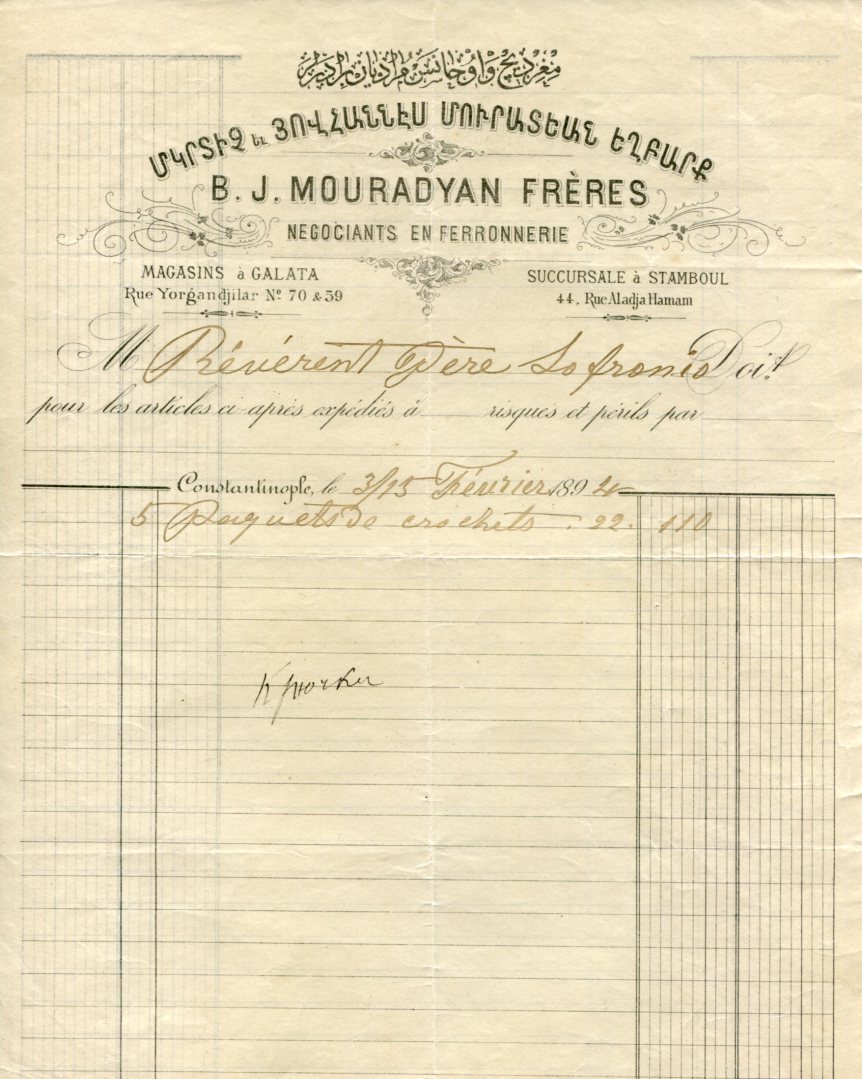 مغرديچ و اوحانس مراديان برادرلر
ՄԿՐՏԻՉ եւ ՅՈՎՀԱՆՆԷՍ ՄՈՒՐԱՏԵԱՆ ԵՂԲԱՐՔ
B. J. MOURADYAN FRÈRES
NEGOCIANTS EN FERRONNERIE
MAGASINS à GALATA
Rue Yorgandjilar Nº 70 & 59
SUCCURSALE à STAMBOUL
44, Rue Aladja Hamam
M Révérent Père Sofronio Doit
pour les articles ci-après expédiés à risques et périls par
Constantinople, le 3/15 Février 1894
5 Paquets de crochets . 22. 110